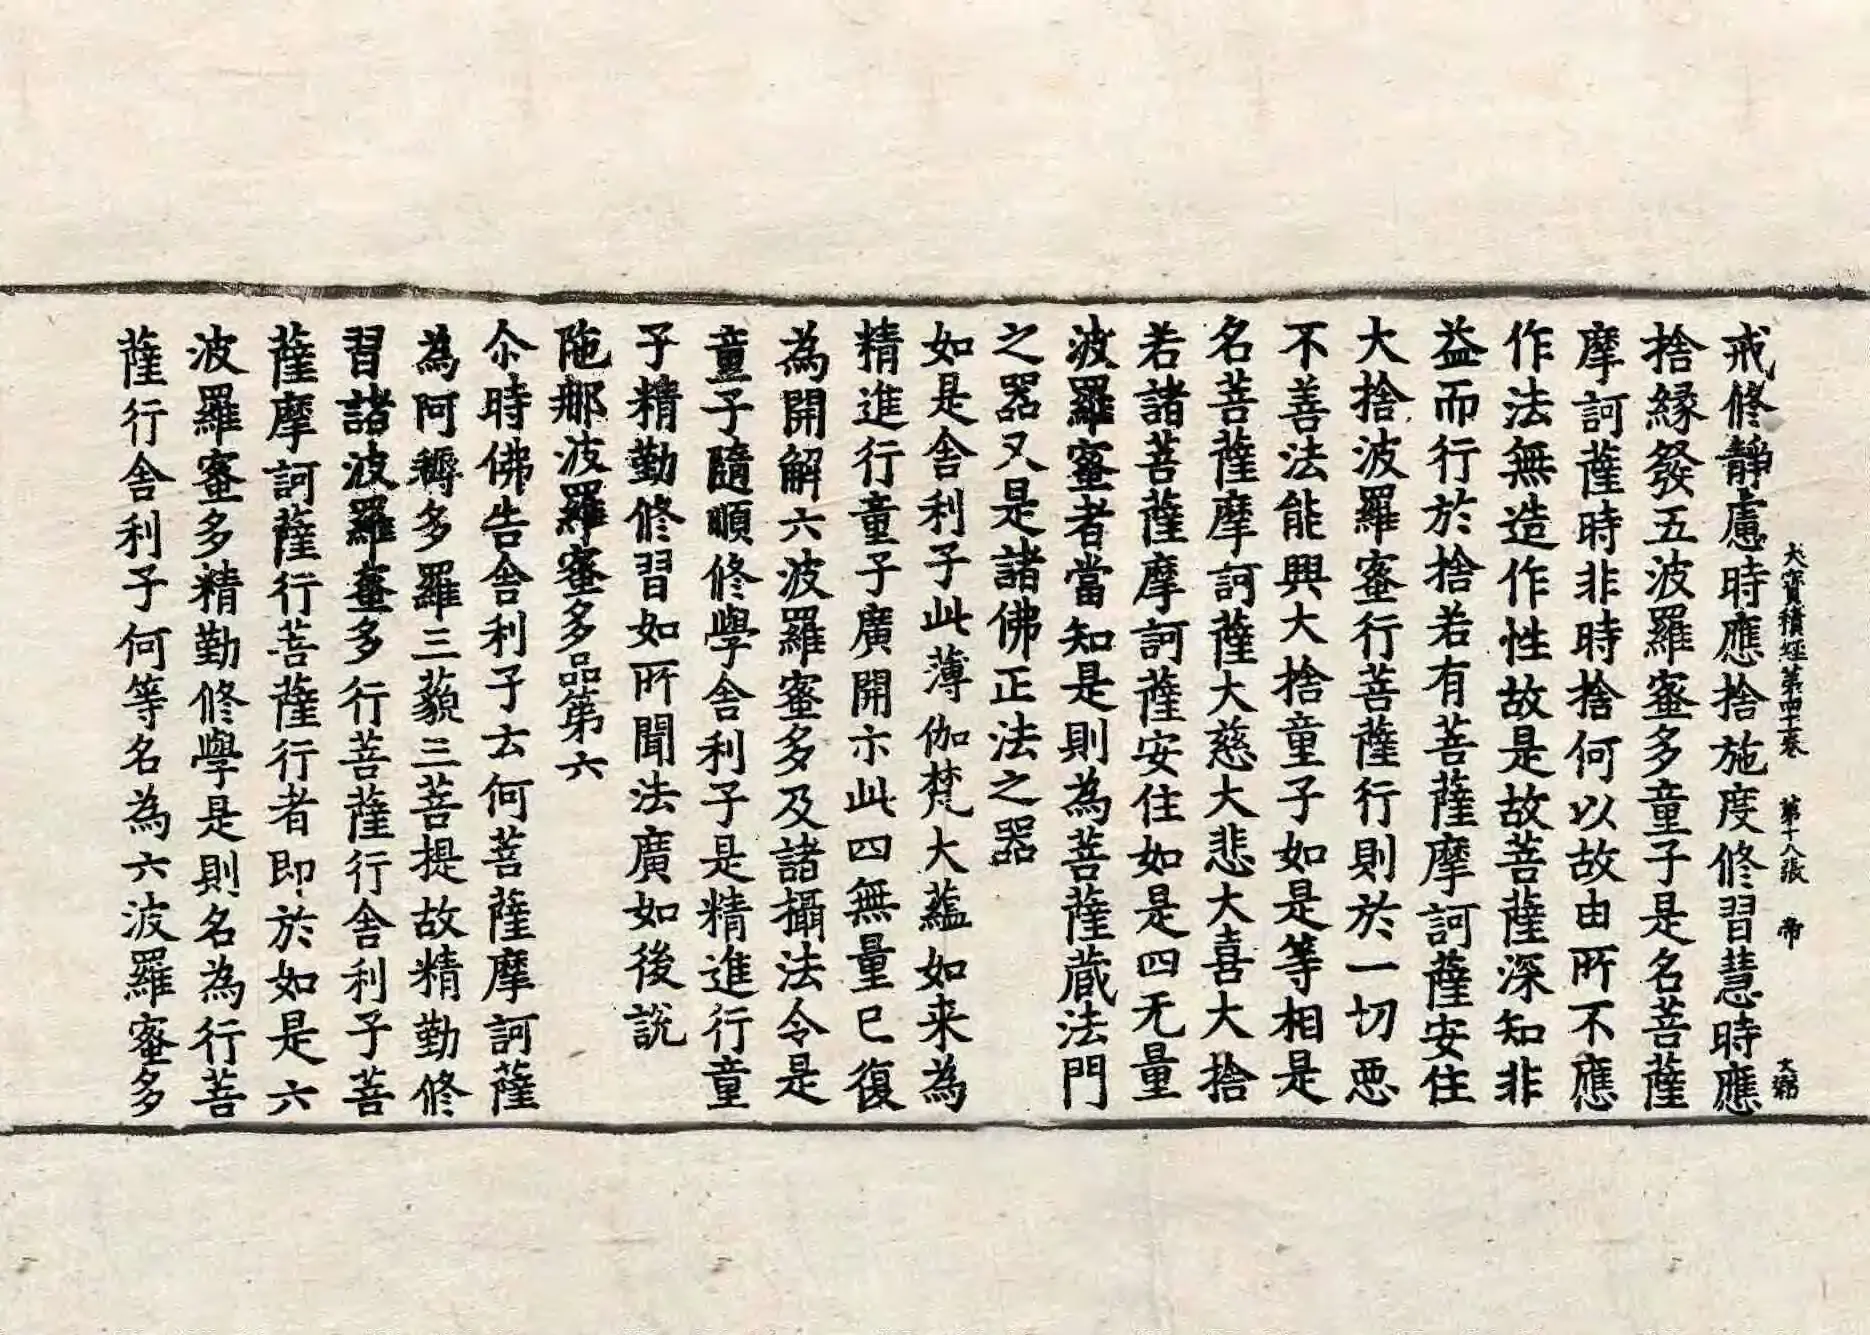 大寶積經第四十一卷 第十八張 帝 大弼
戒修靜慮時應捨施度修習慧時應
捨緣發五波羅蜜多童子是名菩薩
摩訶薩時非時捨何以故由所不應
作法無造作性故是故菩薩深知非
益而行於捨若有菩薩摩訶薩安住
大捨波羅蜜行菩薩行則於一切惡
不善法能興大捨童子如是等相是
名菩薩摩訶薩大慈大悲大喜大捨
若諸菩薩摩訶薩安住如是四无量
波羅蜜者當知是則為菩薩藏法門
之器又是諸佛正法之器
如是舍利子此薄伽梵大蘊如来為
精進行童子廣開示此四無量已復
為開解六波羅蜜多及諸攝法令是
童子隨順修學舍利子是精進行童
子精勤修習如所聞法廣如後說
陁那波羅蜜多品第六
尒時佛告舍利子云何菩薩摩訶薩
為阿耨多羅三藐三菩提故精勤修
習諸波羅蜜多行菩薩行舍利子菩
薩摩訶薩行菩薩行者即於如是六
波羅蜜多精勤修學是則名為行菩
薩行舍利子何等名為六波羅蜜多